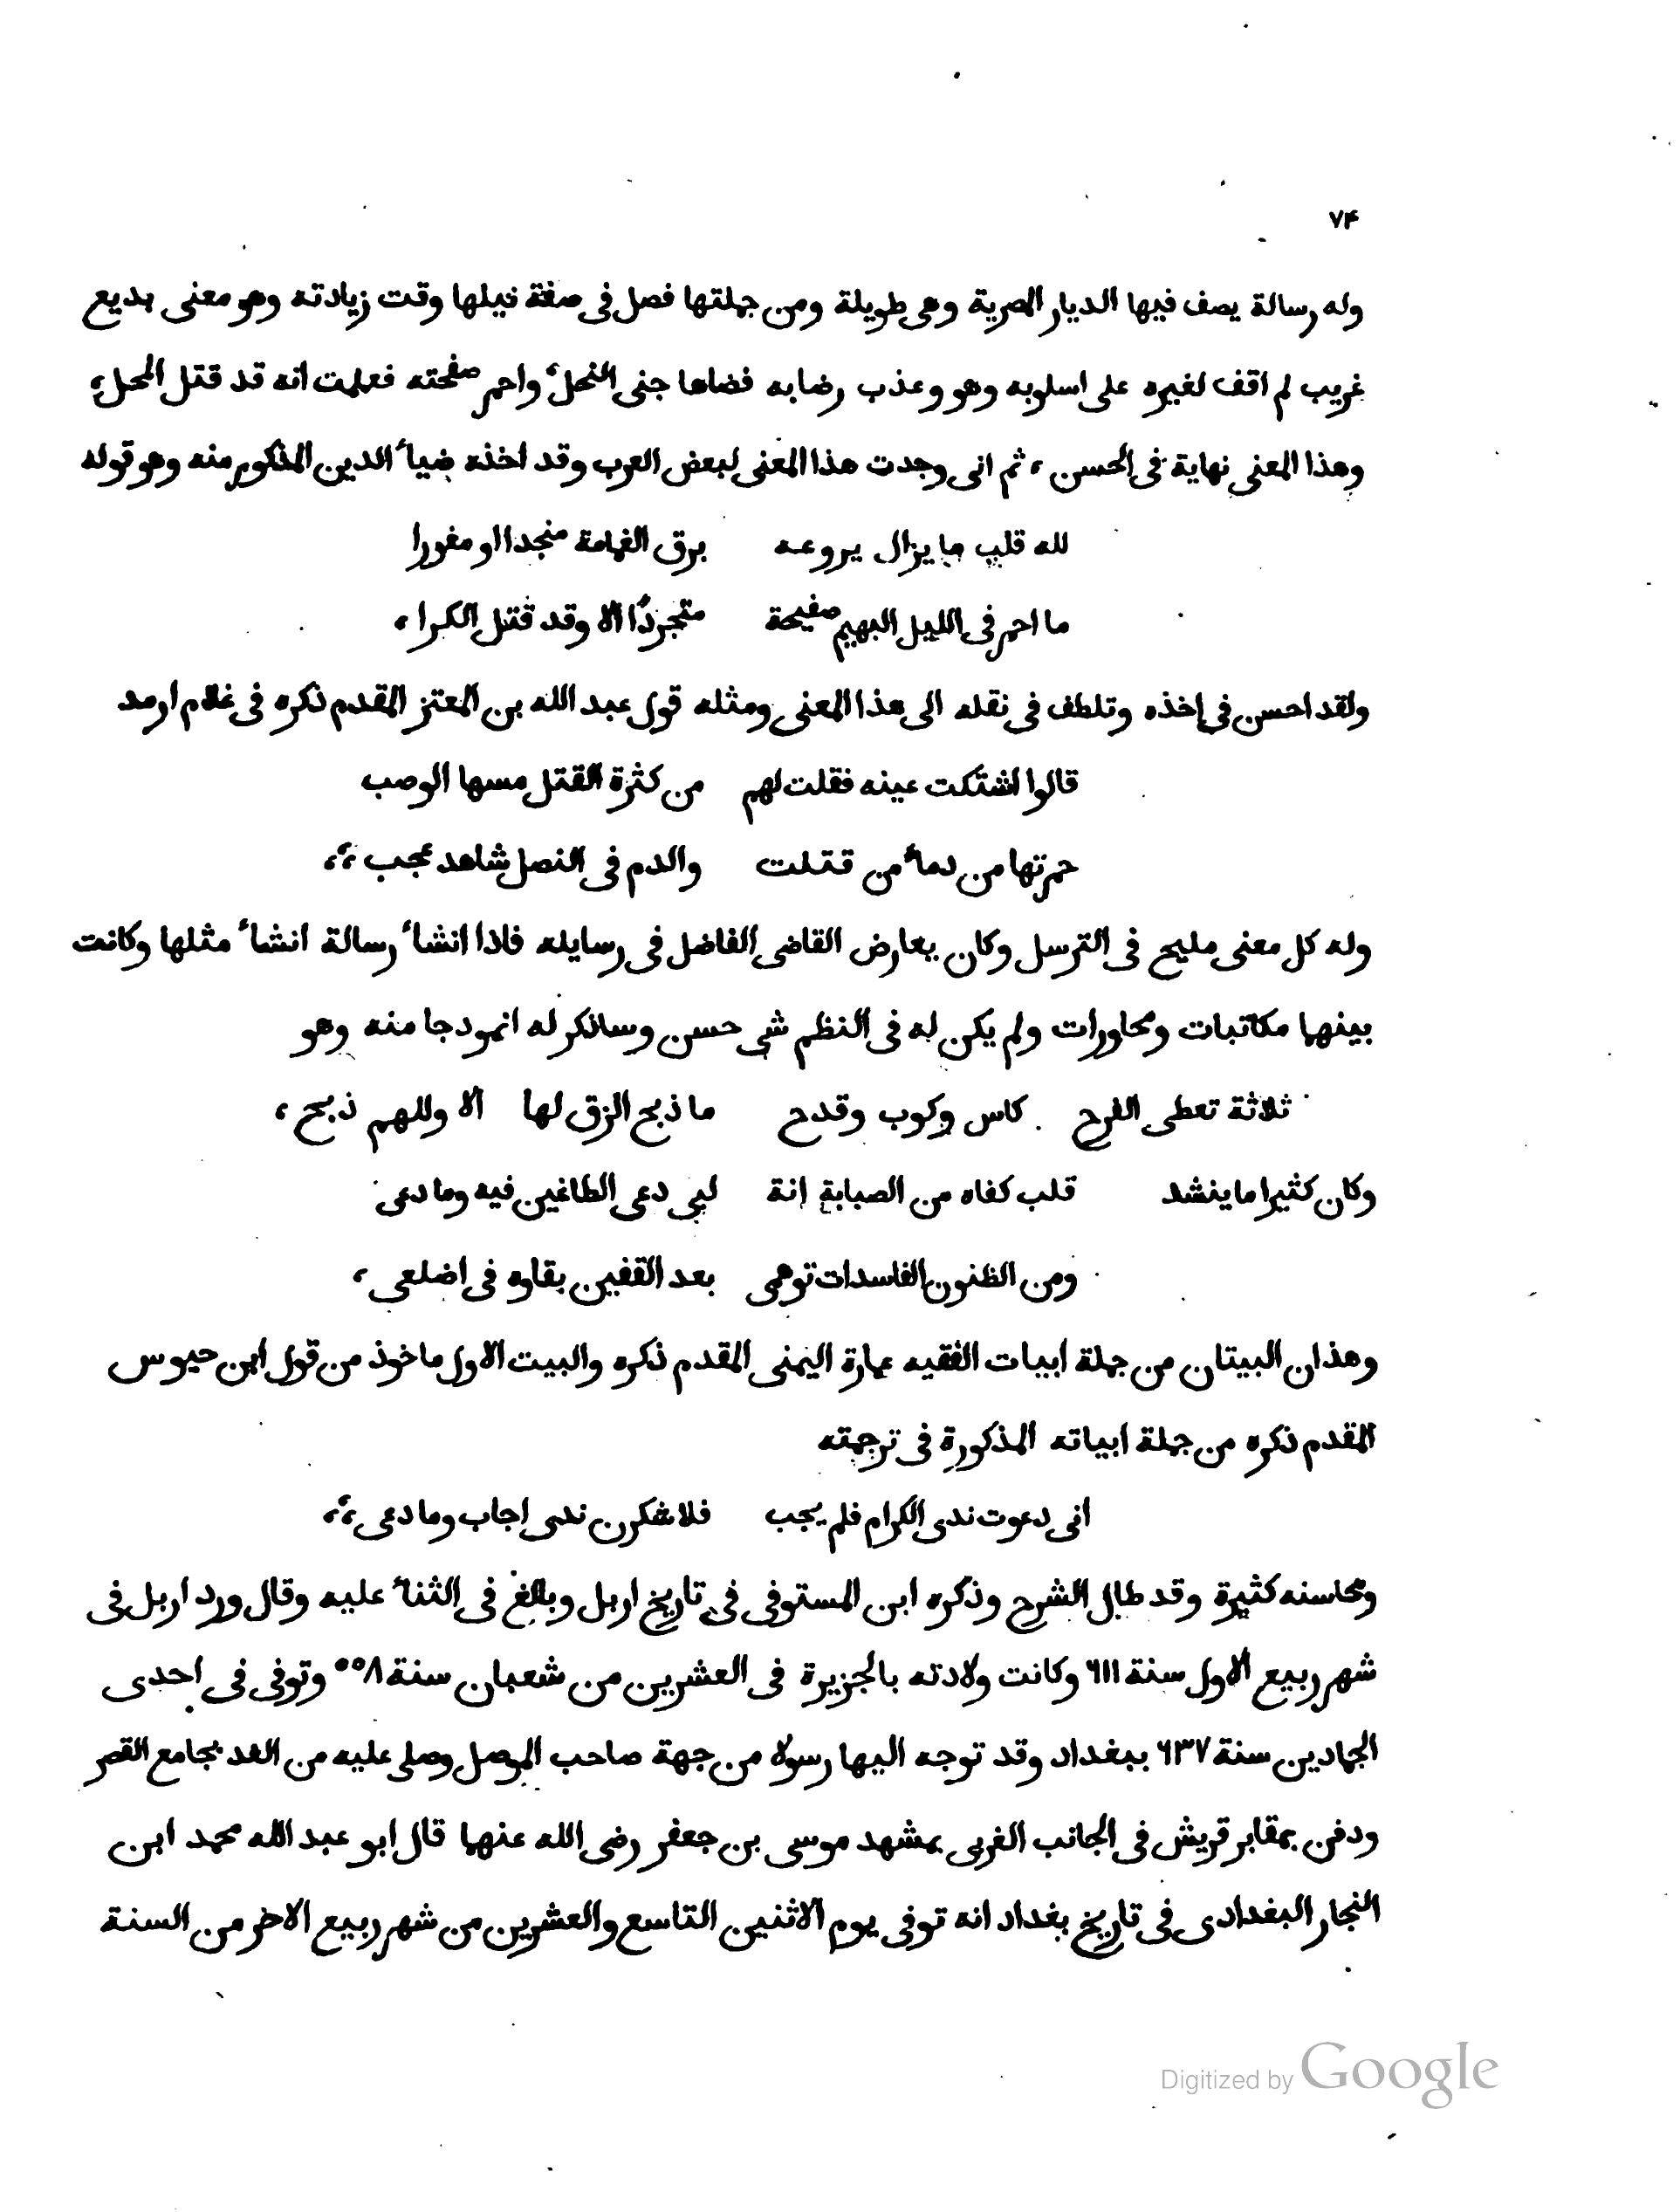 ۷۴
وله رسالة يصف فيها الديار المصرية وهى طويلة ومن جملتها فصل فى صفة نيلها وقت زيادته وهو معنى بديع
غريب لم اقف لغيره على اسلوبه وهو وعذب رضابه فضاها جنى النحل ، واحمر صفحته فعلمت انه قد قتل المحل ،
وهذا المعنى نهاية فى الحسن ، ثم انى وجدت هذا المعنى لبعض العرب وقد اخذه ضياء الدين المذكور منه وهو قوله
لله قلب ما يزال يروعه برق الغمامة منجدا او مغورا
ما احمر فى الليل البهيم صفيحة متجردًا الا وقد قتل الكرا ،
ولقد احسن فى اخذه وتلطف فى نقله الى هذا المعنى ومثله قول عبد الله بن المعتز المقدم ذكره فى غلام ارمد
قالوا اشتكت عينه فقلت لهم من كثرة القتل مسها الوصب
حمرتها من دماء من قتلت والدم فى النصل شاهد عجب ،،
وله كل معنى مليح فى الترسل وكان يعارض القاضى الفاضل فى رسايله فاذا انشاء رسالة انشاء مثلها وكانت
بينهما مكاتبات ومحاورات ولم يكن له فى النظم شى حسن وساذكر له انموذجا منه وهو
ثلاثة تعطى الفرح كاس وكوب وقدح ما ذبح الزق لها الا وللهم ذبح ،
وكان كثيرا ما ينشد قلب كفاه من الصبابة انة لبى دعى الظاغين فيه وما دعى
ومن الظنون الفاسدات توهمى بعد القفين بقاوه فى اضلعى ،
وهذان البيتان من جملة ابيات الفقيه عمارة اليمنى المقدم ذكره والبيت الاول ماخوذ من قول ابن حيوس
المقدم ذكره من جملة ابياته المذكورة فى ترجمته
انى دعوت ندى الكرام فلم يجب فلاشكرن ندى اجاب وما دعى ،،
ومحاسنه كثيرة وقد طال الشرح وذكره ابن المستوفى فى تاريخ اربل وبالغ فى الثناء عليه وقال ورد اربل فى
شهر ربيع الاول سنة ٦١١ وكانت ولادته بالجزيرة فى العشرين من شعبان سنة ٥٥٨ وتوفى فى احدى
الجمادين سنة ٦٣٧ ببغداد وقد توجه اليها رسولا من جهة صاحب الموصل وصلى عليه من الغد بجامع القصر
ودفن بمقابر قريش فى الجانب الغربى بمشهد موسى بن جعفر رضى الله عنهما قال ابو عبد الله محمد ابن
النجار البغدادى فى تاريخ بغداد انه توفى يوم الاثنين التاسع والعشرين من شهر ربيع الاخر من السنة
Digitized by Google